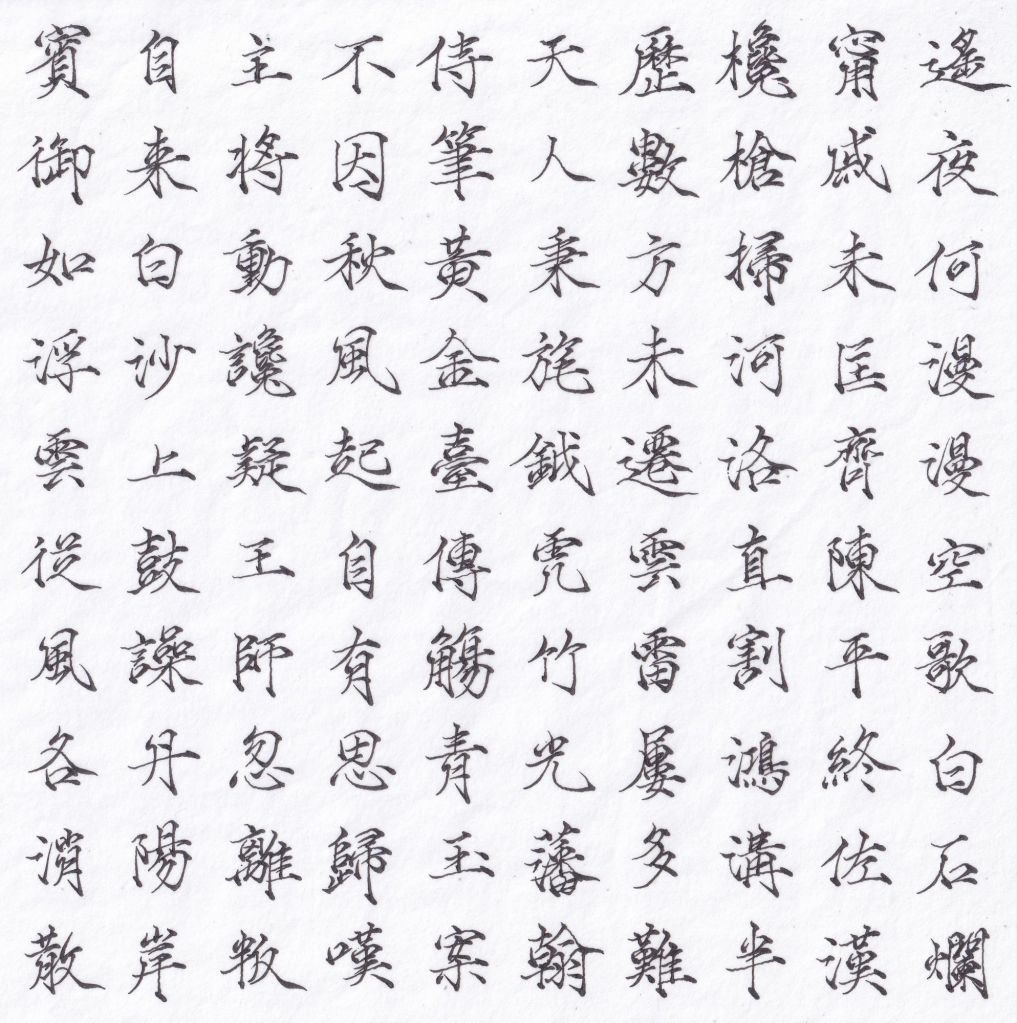 遙夜何漫漫空歌白石爛
甯戚未匡齊陳平終佐漢
欃槍掃河洛直割鴻溝半
歷數方未遷雲雷屢多難
天人秉旄鉞虎竹光藩翰
侍筆黃金臺傳觴青玉案
不因秋風起自有思歸嘆
主將動讒疑王師忽離叛
自来白沙上鼓譟丹陽岸
賓御如浮雲從風各消散